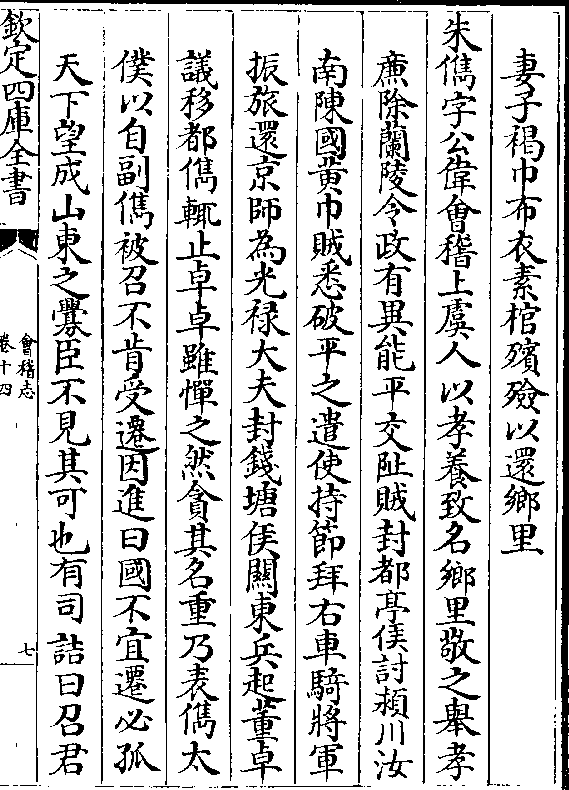 妻子褐巾布衣素棺殯殮以還鄉里
朱儁字公偉會稽上虞人以孝養致名鄉里敬之舉孝
廉除蘭陵令政有異能平交阯賊封都亭侯討潁川汝
南陳國黄巾賊悉破平之遣使持節拜右車騎將軍
振旅還京師為光禄大夫封錢塘侯關東兵起董卓
議移都儁輒止卓卓雖憚之然貪其名重乃表儁太
僕以自副儁被召不肯受遷因進曰國不宜遷必孤
天下望成山東之釁臣不見其可也有司詰曰召君
欽定四庫全書
會稽志
卷十四
七